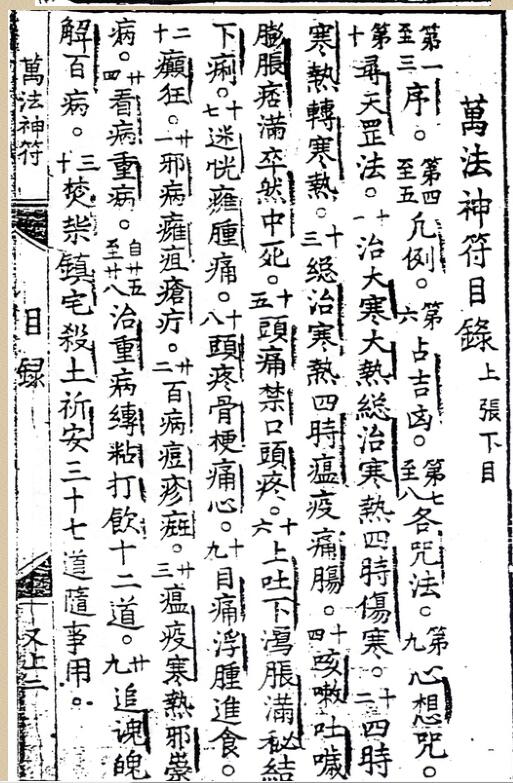 萬法神符目錄上張下目
第一至三序。第四至五凡例。第六占吉凶。第七至八各咒法。第九心想咒。
第十尋天罡法。十一治大寒大熱総治寒熱四時傷寒。十二四時
寒熱轉寒熱。十三総治寒熱四時瘟疫痛腸。十四咳嗽吐
膨脹痞滿卒然中死。十五頭痛禁口頭疼。十六上吐下瀉脹滿秘結
下痢。十七迷恍癰腫痛。十八頭疼骨梗痛心。十九目痛浮腫進食。
二十癲狂。廿一邪病癰疽瘡疔。廿二百病痘疹。廿三瘟疫寒熱邪祟
病。廿四看病重病。自廿五至廿八治重病縳粘打飲十二道。廿九追魂魄
解百病。三十焚柴鎮宅殺土祈安三十七道隨事用。
萬法神符 目録 又上二